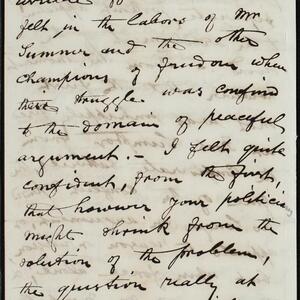 felt in the labors of Mr
Sumner and the other
champions of freedom when
their struggle was confined
to the domain of peaceful
argument. – I felt quite
confident, from the first,
that however your politicians
might shrink from the
solution of the problem,
the question really at